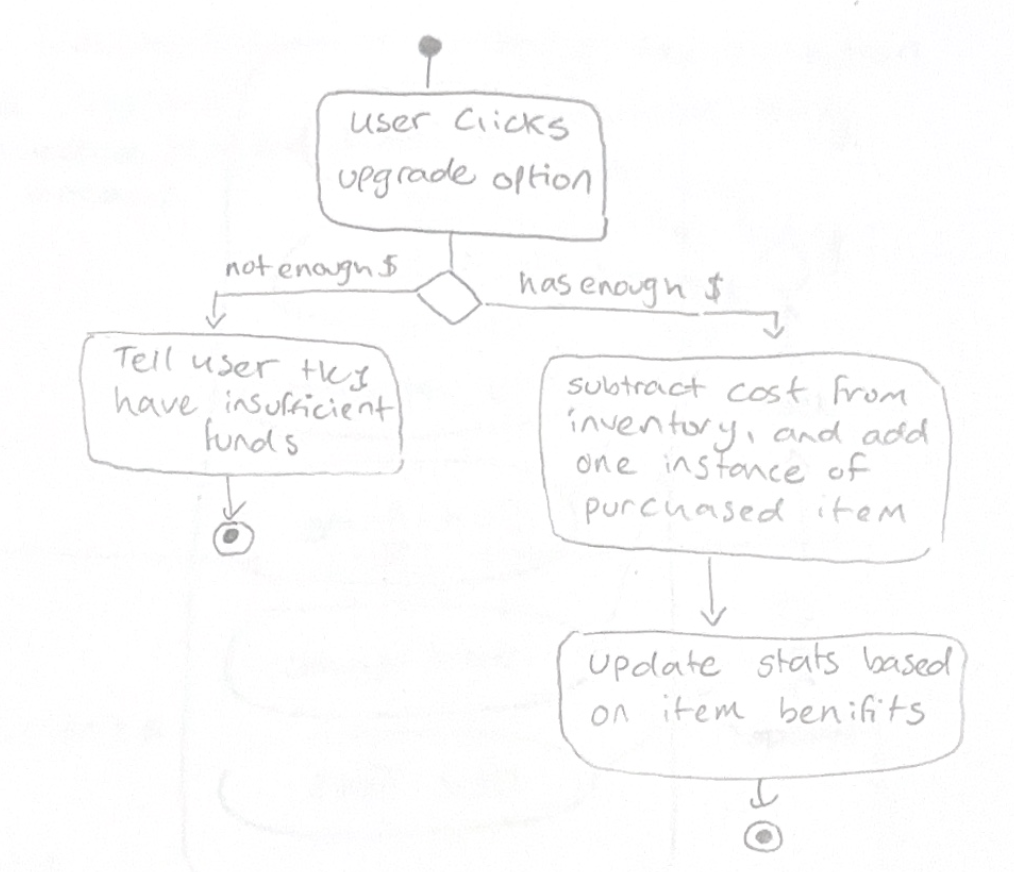 user clicks
upgrade option
not enough $
has enough $
Tell user they
have insufficient
funds
subtract cost from
inventory, and add
one instance of
purchased item
update stats based
on item benifits